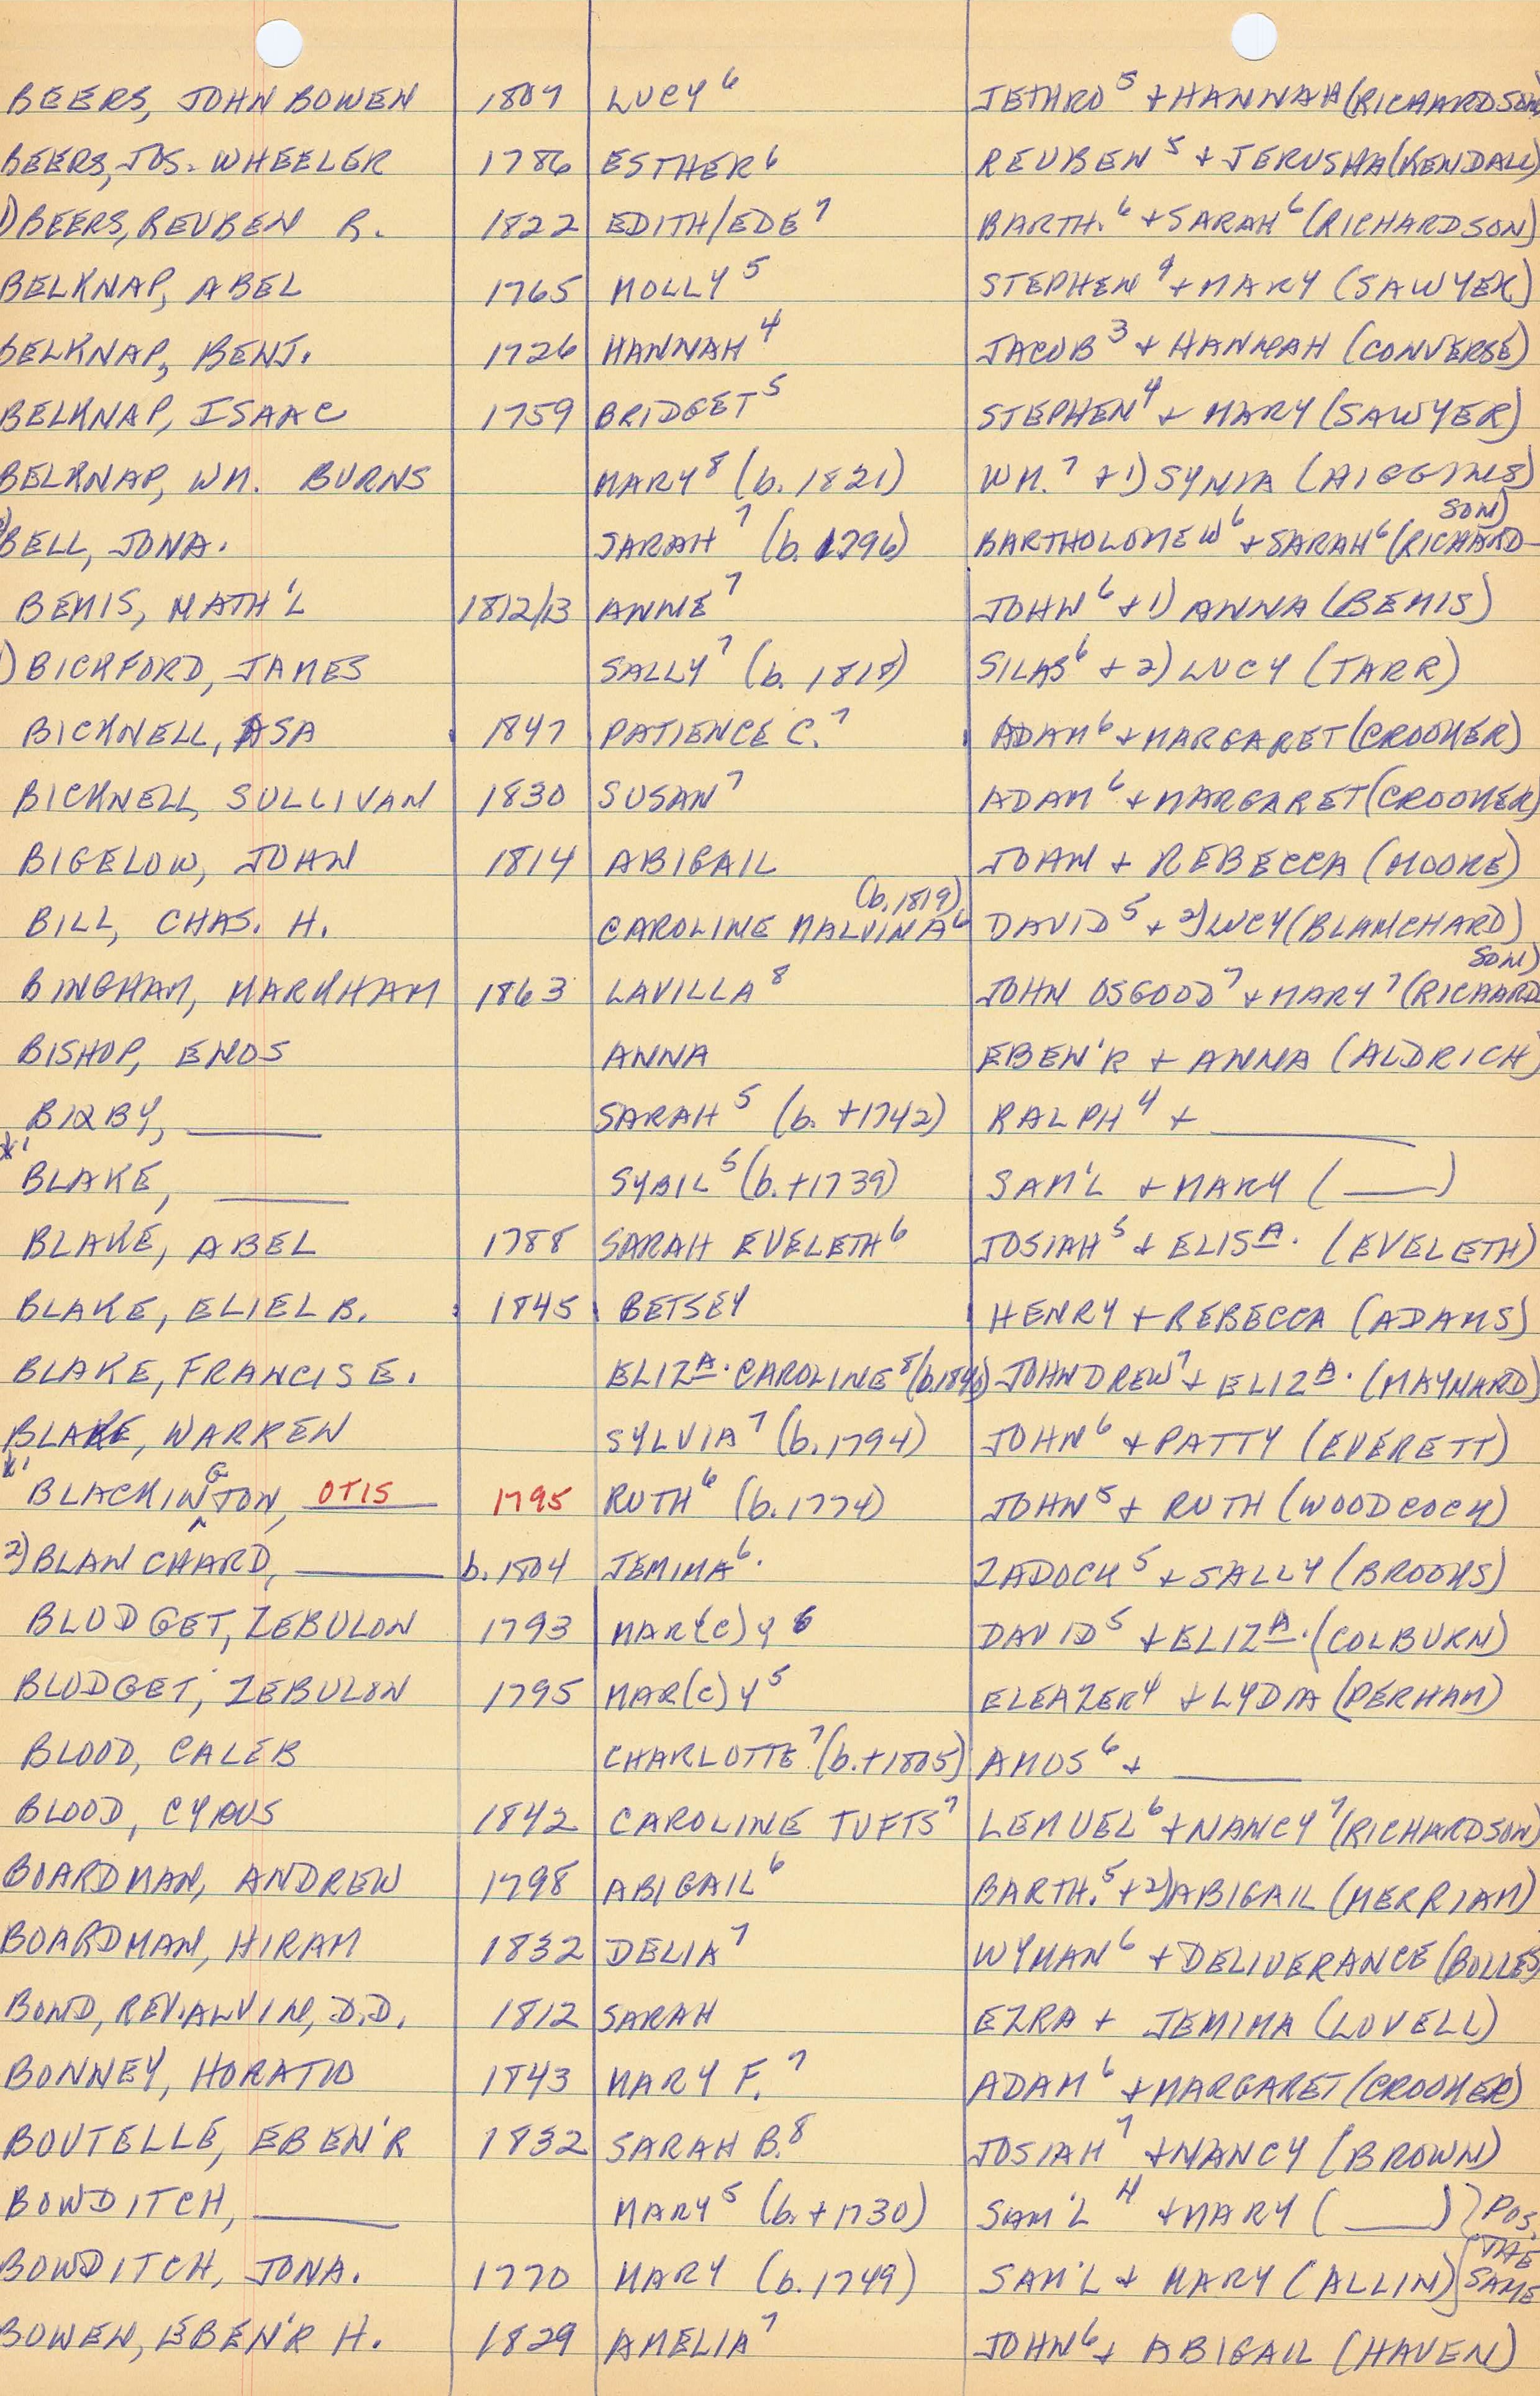 BEERS, JOHN BOWEN 1807 LUCY⁶ JETHRO⁵ + HANNAH (RICHARDSON)
BEERS, JOS. WHEELER 1786 ESTHER⁶ REUBEN⁵ + JERUSHA (KENDALL)
1) BEERS, REUBEN R. 1822 EDITH/EDE⁷ BARTH.⁶ + SARAH⁶ (RICHARDSON)
BELKNAP, ABEL 1765 MOLLY⁵ STEPHEN⁴ + MARY (SAWYER)
BELKNAP, BENJ. 1726 HANNAH⁴ JACOB³ + HANNAH (CONVERSE)
BELKNAP, ISAAC 1759 BRIDGET⁵ STEPHEN⁴ + MARY (SAWYER)
BELKNAP, WM. BURNS MARY⁸ (b. 1821) WM.⁷ + 1) SYNIA (HIGGINS)
BELL, JONA. SARAH⁷ (b. 1796) BARTHOLOMEW⁶ + SARAH⁶ (RICHARD-SON)
BEMIS, MATH'L 1812/13 ANNIE⁷ JOHN⁶ + 1) ANNA (BEMIS)
1) BICKFORD, JAMES SALLY⁷ (b. 1818) SILAS⁶ + 2) LUCY (TARR)
BICKNELL, ASA 1847 PATIENCE C.⁷ ADAM⁶ + MARGARET (CROOKER)
BICKNELL, SULLIVAN 1830 SUSAN⁷ ADAM⁶ + MARGARET (CROOKER)
BIGELOW, JOHN 1814 ABIGAIL JOHN + REBECCA (MOORE)
BILL, CHAS. H. CAROLINE MALVINA⁶ (b. 1819) DAVID⁵ + 2) LUCY (BLANCHARD)
BINGHAM, MARKHAM 1863 LAVILLA⁸ JOHN OSGOOD⁷ + MARY⁷ (RICHARDSON)
BISHOP, ENOS ANNA EBEN'R + ANNA (ALDRICH)
BIXBY, ____ SARAH⁵ (b. +1742) RALPH⁴ + ____
BLAKE, ____ SYBIL⁵ (b. +1739) SAM'L + MARY (____)
BLAKE, ABEL 1788 SARAH EVELETH⁶ JOSIAH⁵ + ELISA. (EVELETH)
BLAKE, ELIEL B. 1845 BETSEY HENRY + REBECCA (ADAMS)
BLAKE, FRANCIS E. ELIZA. CAROLINE⁸ JOHN DREW⁷ + ELIZA. (MAYNARD)
BLAKE, WARREN SYLVIA⁷ (b. 1794) JOHN⁶ + PATTY (EVERETT)
BLACKINGTON, OTIS 1795 RUTH⁶ (b. 1774) JOHN⁵ + RUTH (WOODCOCK)
2) BLANCHARD, ____ b. 1804 JEMIMA⁶. ZADOCK⁵ + SALLY (BROOKS)
BLODGET, ZEBULON 1793 MAR(C)Y⁶ DAVID⁵ + ELIZA. (COLBURN)
BLODGET, ZEBULON 1795 MAR(C)Y⁵ ELEAZER⁴ + LYDIA (PERHAM)
BLOOD, CALEB CHARLOTTE⁷ (b. +1805) AMOS⁶ + ____
BLOOD, CYRUS 1842 CAROLINE TUFTS⁷ LEMUEL⁶ + NANCY⁷ (RICHARDSON)
BOARDMAN, ANDREW 1798 ABIGAIL⁶ BARTH.⁵ + 2) ABIGAIL (MERRIAM)
BOARDMAN, HIRAM 1832 DELIA⁷ WYMAN⁶ + DELIVERANCE (BOLLES)
BOND, REV. ALVIN, D.D. 1812 SARAH EZRA + JEMIMA (LOVELL)
BONNEY, HORATIO 1843 MARY F.⁷ ADAM⁶ + MARGARET (CROOKER)
BOUTELLE, EBEN'R 1832 SARAH B.⁸ JOSIAH⁷ + NANCY (BROWN)
BOWDITCH, ____ MARY⁵ (b. +1730) SAM'L⁴ + MARY (____) } POS.
BOWDITCH, JONA. 1770 MARY (b. 1749) SAM'L + MARY (ALLIN) } THE SAME
BOWEN, EBEN'R H. 1829 AMELIA⁷ JOHN⁶ + ABIGAIL (HAVEN)